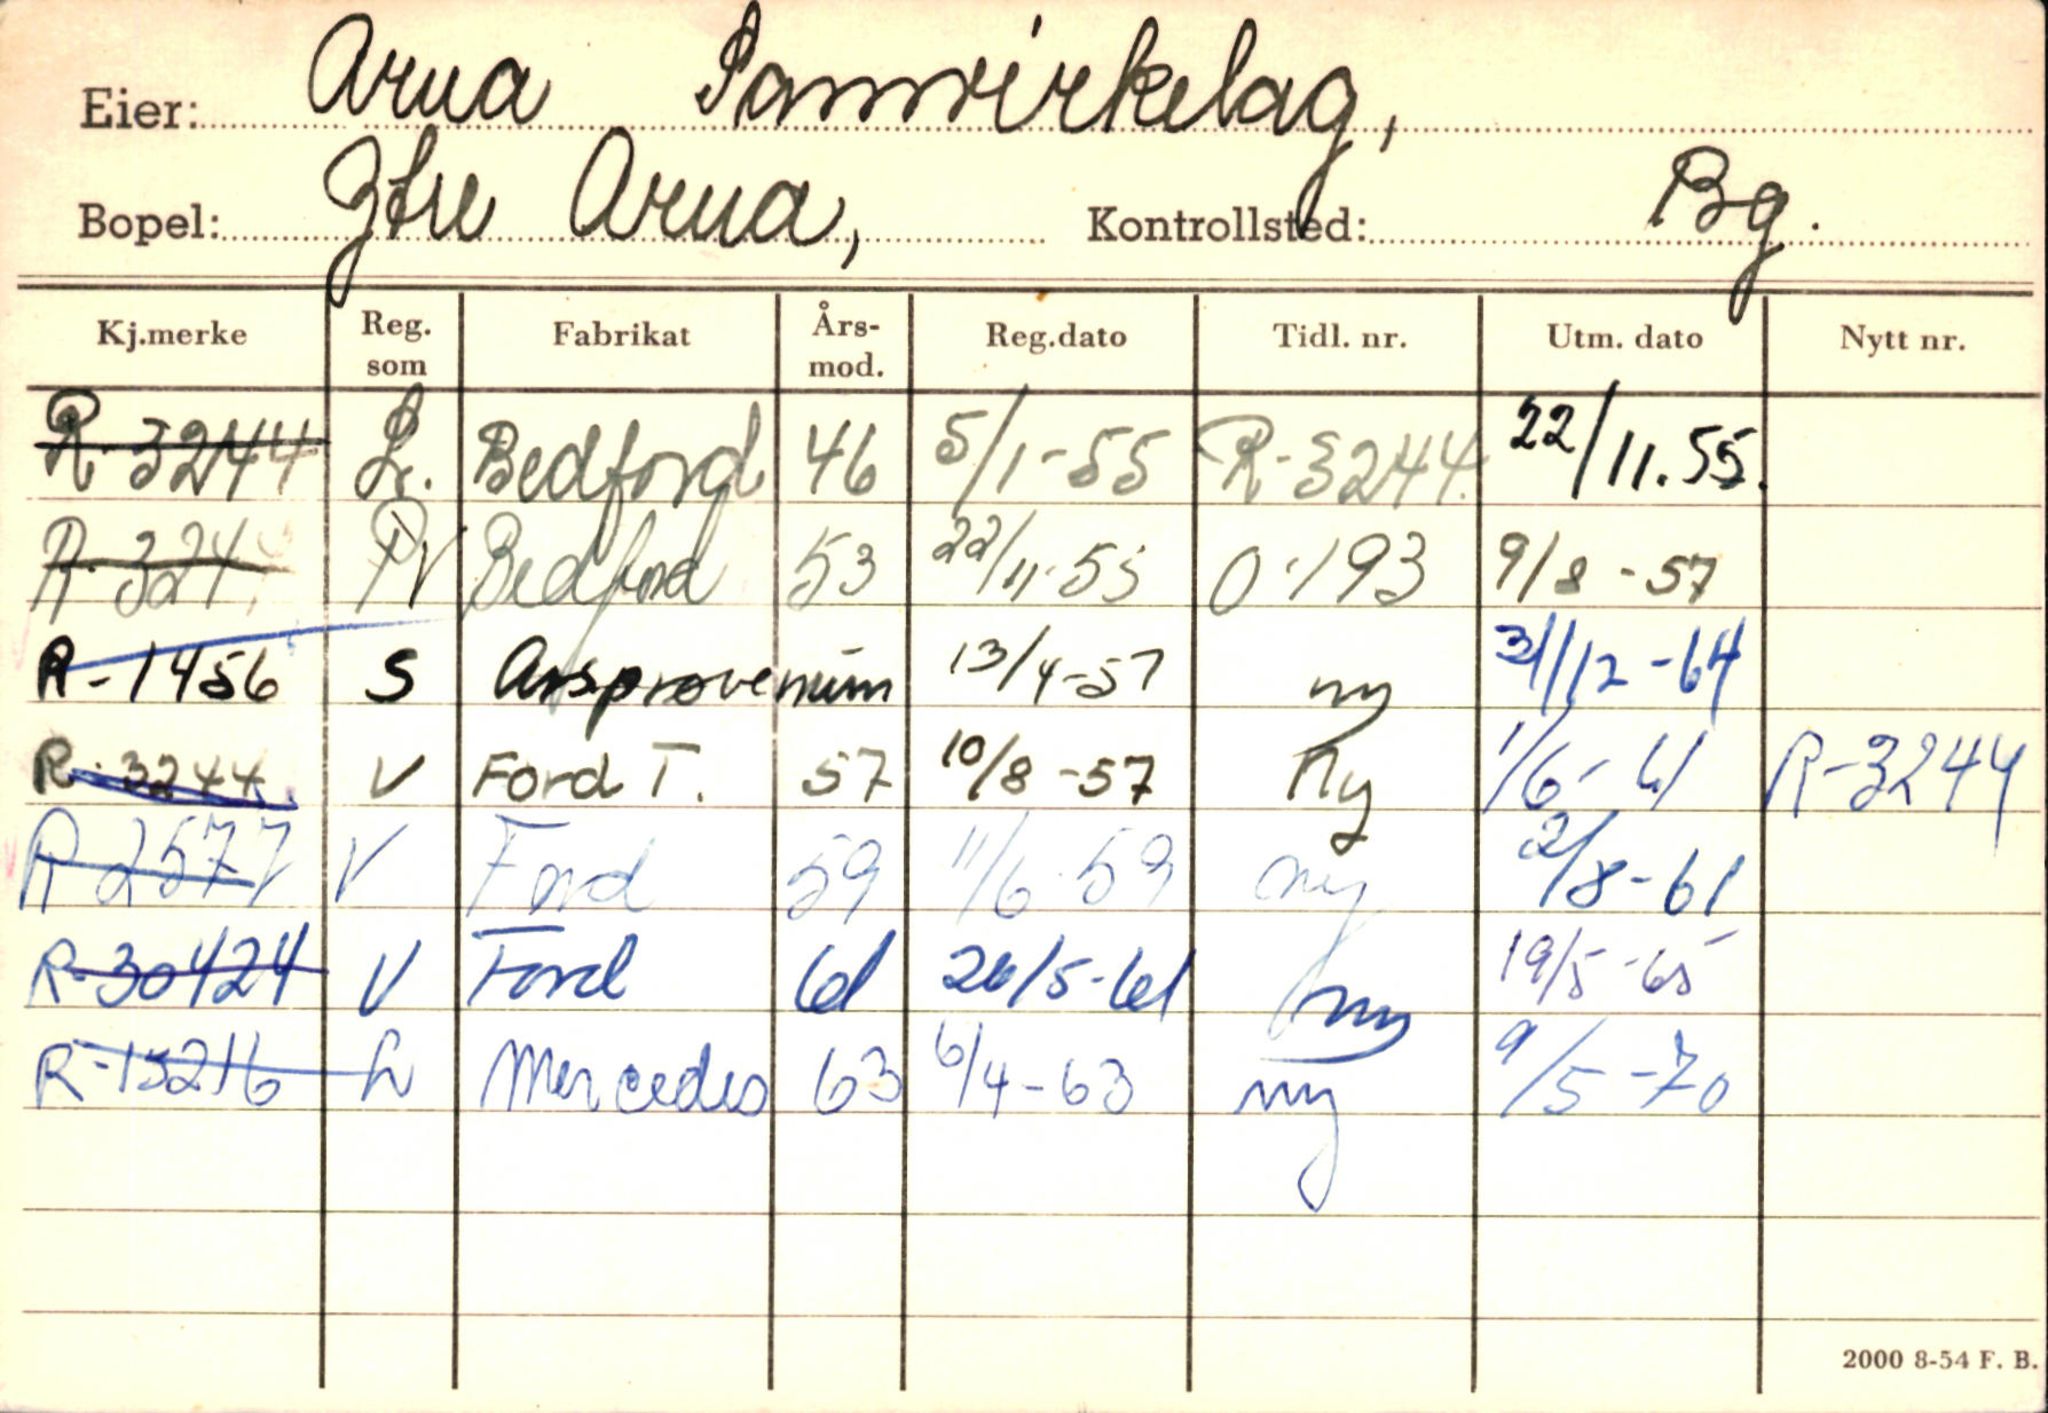 Eier: Arna Samvirkelag,
Bopel: Ytre Arna, Kontrollsted: Bg.
Kj.merke Reg. som Fabrikat Års-mod. Reg.dato Tidl. nr. Utm. dato Nytt nr.
R-3244 L. Bedford 46 5/1-55 R-3244. 22/11.55.
R-324 Bedford 53 22/11-55 O-193 9/8-57
R-1456 S Årsprøvenum 13/4-57 ny 31/12-64
R-3244 V Ford T. 57 10/8-57 Ny 1/6-61 R-3244
R-2577 V Ford 59 11/6-59 ny 2/8-61
R-30424 V Ford 61 26/5-61 ny 19/5-65
R-15216 L Mercedes 63 6/4-63 ny 9/5-70
2000 8-54 F. B.